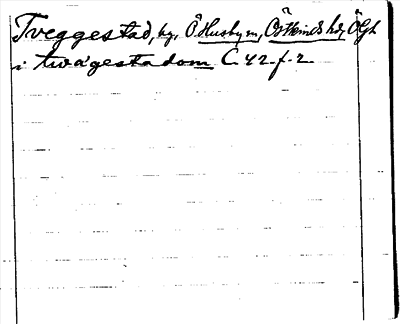 Tveggestad, by, Ö Husby sn, Östkinds hd, ÖGtl
i twægestadom C 42 f. 2